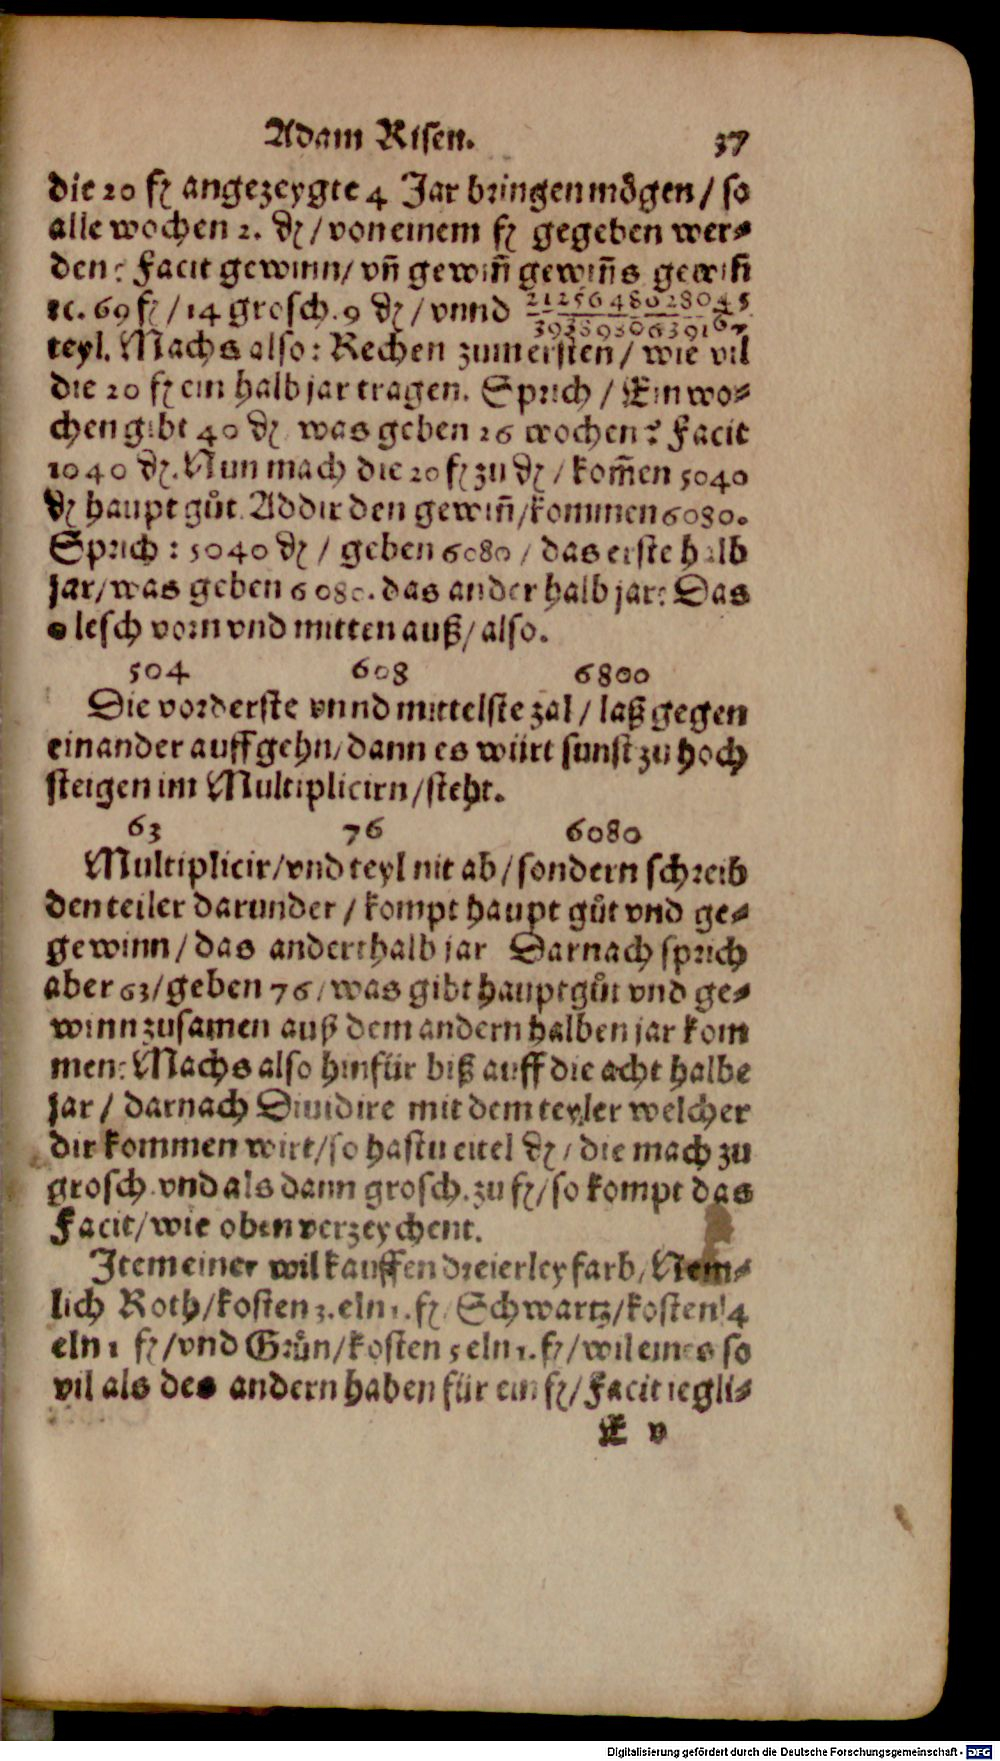 Adam Risen. 37
die 20 fl angezeygte 4 Jar bringen mögen / so
alle wochen 2. ₰ / von einem fl gegeben wer⸗
den: Facit gewinn / vn̄ gewiñ gewiñs gewiñ
ꝛc. 69 fl / 14 grosch. 9 ₰ / vnnd
teyl. Machs also: Rechen zum ersten / wie vil
die 20 fl ein halb jar tragen. Sprich / Ein wo⸗
chen gibt 40 ₰ was geben 26 wochen? Facit
1040 ₰. Nun mach die 20 fl zu ₰ / kom̄en 5040
₰ haupt gůt. Addir den gewiñ / kommen 6080.
Sprich: 5040 ₰ / geben 6080 / das erste halb
jar / was geben 6080. das ander halb jar: Das
0 lesch vorn vnd mitten auß / also.
504 608 6800
Die vorderste vnnd mittelste zal / laß gegen
einander auffgehn / dann es würt sunst zu hoch
steigen im Multiplicirn / steht.
63 76 6080
Multiplicir / vnd teyl nit ab / sondern schreib
den teiler darunder / kompt haupt gůt vnd ge⸗
gewinn / das anderthalb jar Darnach sprich
aber 63 / geben 76 / was gibt hauptgůt vnd ge⸗
winn zusamen auß dem andern halben jar kom
men: Machs also hinfür biß auff die acht halbe
jar / darnach Diuidire mit dem teyler welcher
dir kommen wirt / so hastu eitel ₰ / die mach zu
grosch. vnd als dann grosch. zu fl / so kompt das
Facit / wie oben verzeychent.
Item einer wil kauffen dreierley farb / Nem⸗
lich Roth / kosten 3. eln 1. fl / Schwartz / kosten 4
eln 1 fl / vnd Grůn / kosten 5 eln 1. fl / wil eines so
vil als des andern haben für ein fl / Facit iegli⸗
E v
Digitalisierung gefördert durch die Deutsche Forschungsgemeinschaft - DFG